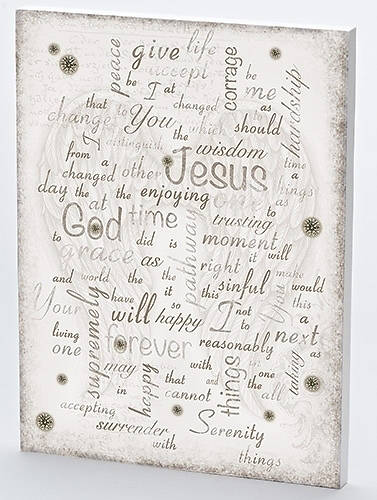 peace give life corrage
accept be I at be me hardship
that to changed as
change You which should
I distinguish the wisdom
from a Jesus time
changed other a things
day the at the enjoying one as
God time trusting
to did is moment
grace as pathway right it will
and world the the this sinful You make would
Your have it so I this
supremely will happy not a
living forever to next
one reasonably as
may with if one taking
happy that and things the
in cannot all
accepting
surrender Serenity
with things